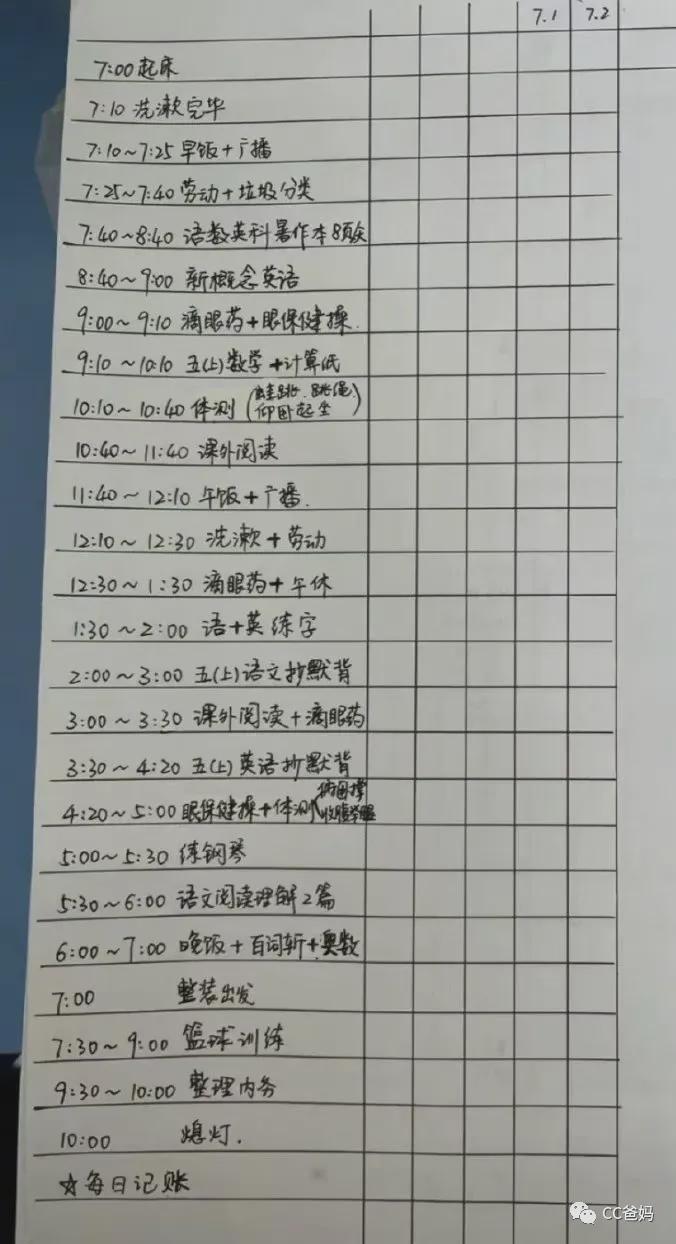 7.1 7.2
7:00 起床
7:10 洗漱完毕
7:10~7:25 早饭+广播
7:25~7:40 劳动+垃圾分类
7:40~8:40 语数英科暑作本8页
8:40~9:00 新概念英语
9:00~9:10 滴眼药+眼保健操.
9:10~10:10 五(上)数学+计算纸
10:10~10:40 体测(蛙跳.跳绳.
仰卧起坐)
10:40~11:40 课外阅读
11:40~12:10 午饭+广播.
12:10~12:30 洗漱+劳动
12:30~1:30 滴眼药+午休
1:30~2:00 语+英练字
2:00~3:00 五(上)语文抄默背
3:00~3:30 课外阅读+滴眼药
3:30~4:20 五(上)英语抄默背
4:20~5:00 眼保健操+体测(俯卧撑
5:00~5:30 练钢琴
5:30~6:00 语文阅读理解2篇
6:00~7:00 晚饭+百词斩+奥数
7:00 整装出发
7:30~9:00 篮球训练
9:30~10:00 整理内务
10:00 熄灯.
☆每日记账
CC爸妈